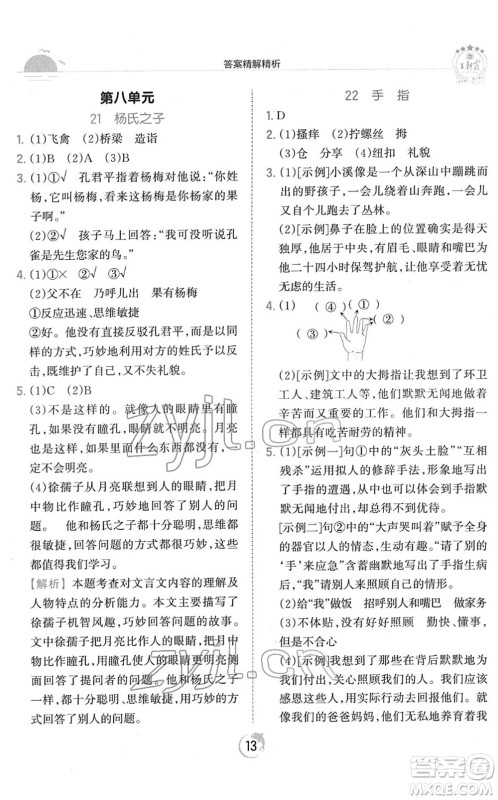 答案精解精析
王朝霞
第八单元
21 杨氏之子
1. (1)飞禽 (2)桥梁 造诣
2. (1)B (2)A (3)A
3. (1)①√ 孔君平看着杨梅对孩子说:“你姓
杨,它叫杨梅,看来这杨梅是你杨家的果
子啊。”
(2)②√ 孩子马上回答:“我可不知道孔
雀是先生您家的鸟。”
4. (1)①× ②√
(2)父不在 乃呼儿出 果有杨梅
①反应迅速、思维敏捷
②好。他没有直接反驳孔君平,而是以同
样的方式,巧妙地用对方的姓氏予以反
击,既维护了自己,又不失礼貌。
5. (1)C (2)B
(3)不是这样的。就像人的眼睛里有瞳
孔,如果没有瞳孔,眼睛就不明亮。月亮
中如果什么东西都没有,也不会明亮。
(4)徐孺子从月亮联想到人的眼睛,从而
想到瞳孔,以此巧妙地回答了别人的问
题。他和杨氏之子都十分聪明,思维都很
很敏捷,回答问题的方式都十分巧妙,都
值得我们学习。
[解析] 本题考查对文言文内容的理解及
人物特点的分析能力。本文主要描写了
徐孺子机智风趣,巧妙回答别人的问题。
文中徐孺子把月亮比作人的眼睛,把月中
物比作瞳孔,以人的眼睛里有瞳孔来类比
月中有物,说明月中有物才明亮。他根据
眼前情景回答对方的问题,他和杨氏之子
一样都思维敏捷,能以巧妙的方式回答对
方提出的问题。
22 手 指
1. D
2. (1)搔痒 (2)拧螺丝 拇
(3)仓 分享 (4)纽扣 礼貌
3. (1)[示例]小溪像是一个从深山中蹦跳而
出的野孩子,一会儿绕着山奔跑,一会儿
撒着欢儿跑进了丛林。
(2)[示例]鼻子在脸上的位置确实是得天
独厚,他居于中央,有眉毛、眼睛和嘴巴为
他二十四小时保驾护航,让他无忧无
虑的。
4. (1) (④) (①) (②) (③)
(2)[示例]文中的大拇指让我想到了环卫
工人、建筑工人等,他们默默无闻地做着
许多苦活累活,但从不抱怨,和大拇指一
样都具有吃苦耐劳的品质。
5. (1)[示例一]句①中的“灰头土脸”“互相
残杀”运用拟人的修辞手法,形象地写出
了手默默无闻、任劳任怨的特点。
[示例二]句②中的“大声哭叫着”赋予手
以人的情态,生动形象地写出了“我”的
“手”当时情况紧急,含蓄幽默地写出了
“我”当时惊慌失措的样子。
(2)给“我”做饭 招呼别人和嘴巴 挠痒
(3)不体贴、不关心、不照顾 勤快、懂事、
体贴、关心
(4)[示例]我想到了那些在背后默默地关
心我们、支持我们、帮助我们,不善言辞却
用实际行动在表达着自己的爱的人们。
就像我们的爸爸妈妈,岁月在他们的手
13
zyjl.cn
zyjl.cn
答案圈
MXQE.COM